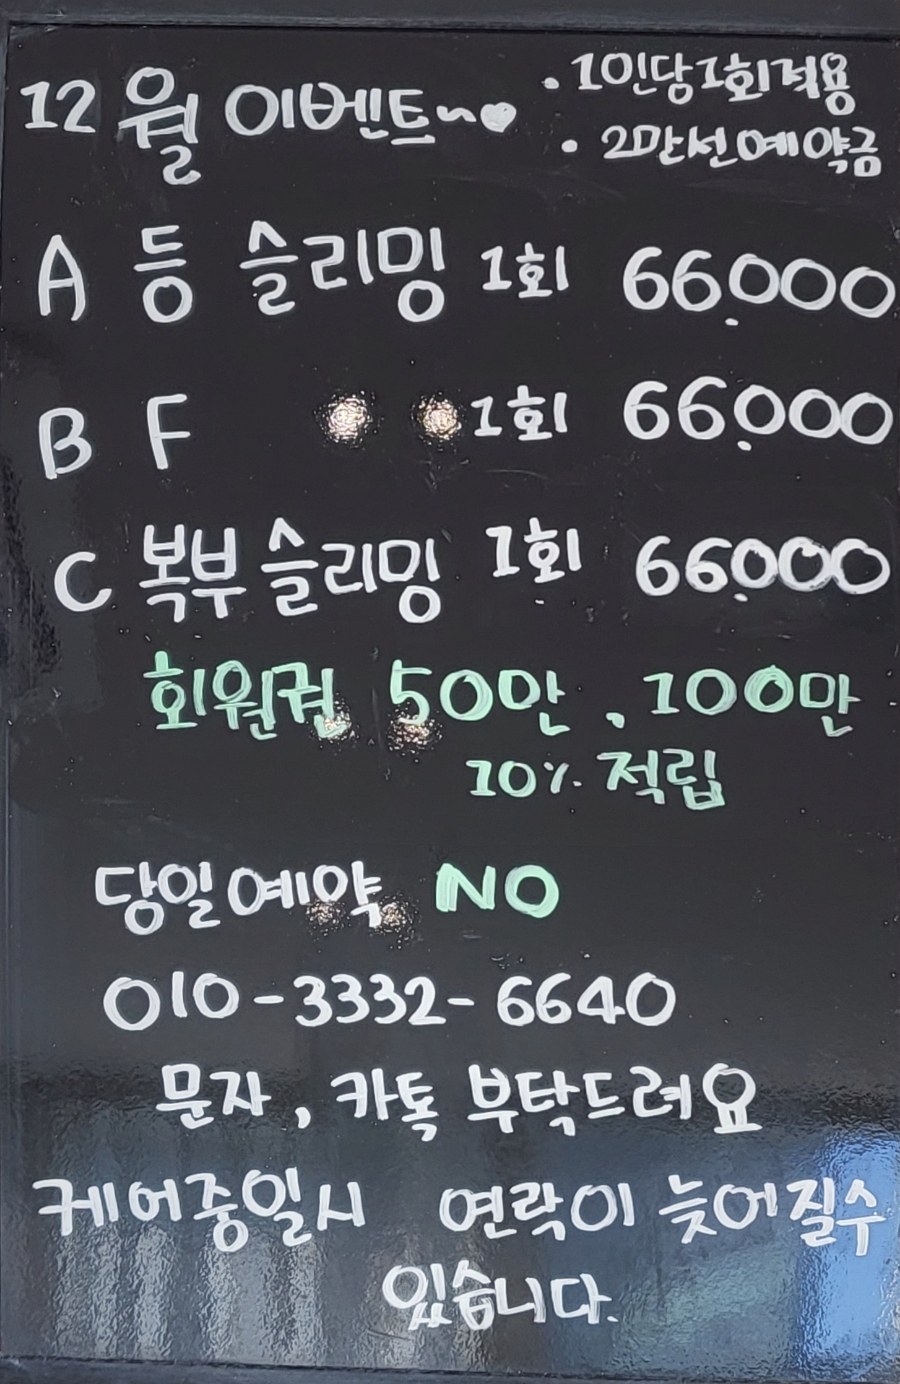 12월 이벤트~♥
· 1인당1회적용
· 2만선예약금
A 등 슬리밍 1회 66.000
B F 1회 66.000
C 복부슬리밍 1회 66.000
회원권 50만, 100만
10% 적립
당일예약 NO
010-3332-6640
문자, 카톡 부탁드려요
케어중일시 연락이 늦어질수
있습니다.